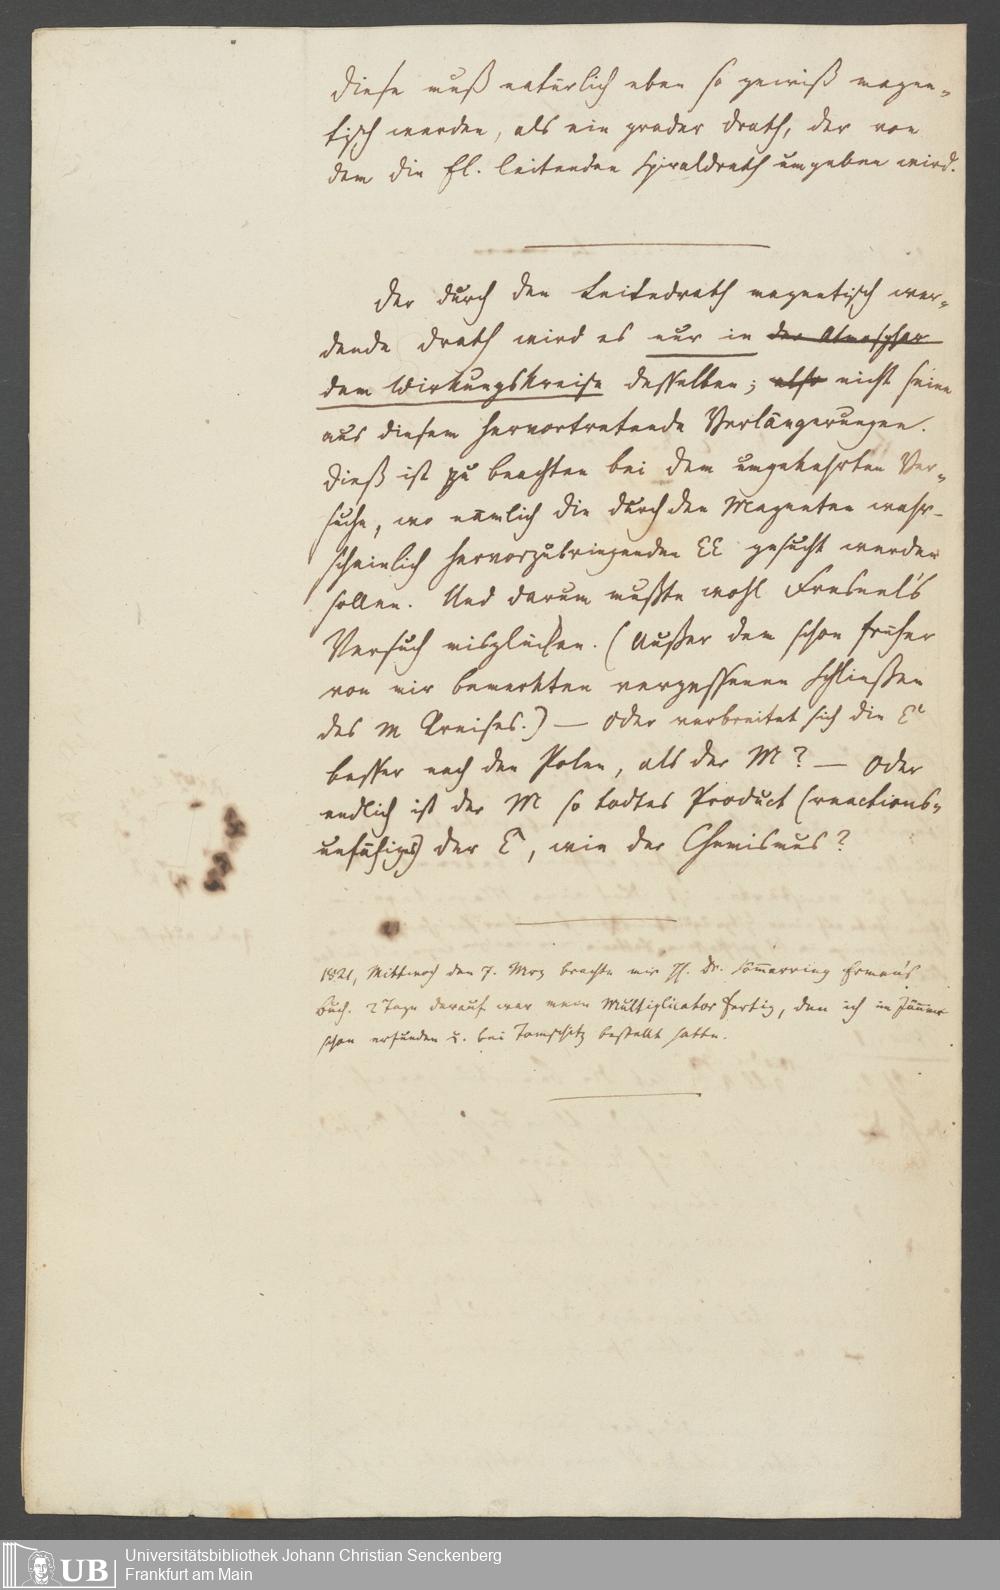 diese muß natürlich eben so gewiß magne-
tisch werden, als ein grader Drath, der von
dem die El. leitenden Spiraldrath umgeben wird.
Der durch den Leitedrath magnetisch wer-
dende Drath wird es nur in der Atmosphär
dem Wirkungskreise desselben; also nicht seine
aus diesem hervortretende Verlängerungen.
Dieß ist zu beachten bei dem umgekehrten Ver-
suche, wo nämlich die durch den Magneten wahr-
scheinlich hervorzubringenden EE gesucht werden
sollen. Und darum mußte wohl Fresnel's
Versuch misglücken. (Außer dem schon früher
von mir bemerkten vergessenen Schließen
des M Kreises.) — Oder verbreitet sich die E
besser nach den Polen, als der M? — Oder
endlich ist der M so todtes Product (reactions-
unfähiges) der E, wie der Chemismus?
1821, Mittwoch den 7. Mrz brachte mir H. Dr. Sömmerring Erman's
Buch. 2 Tage darauf war mein Multiplicator fertig, den ich im Jänner
schon erfunden u. bei hatte.
Universitätsbibliothek Johann Christian Senckenberg
Frankfurt am Main
UB